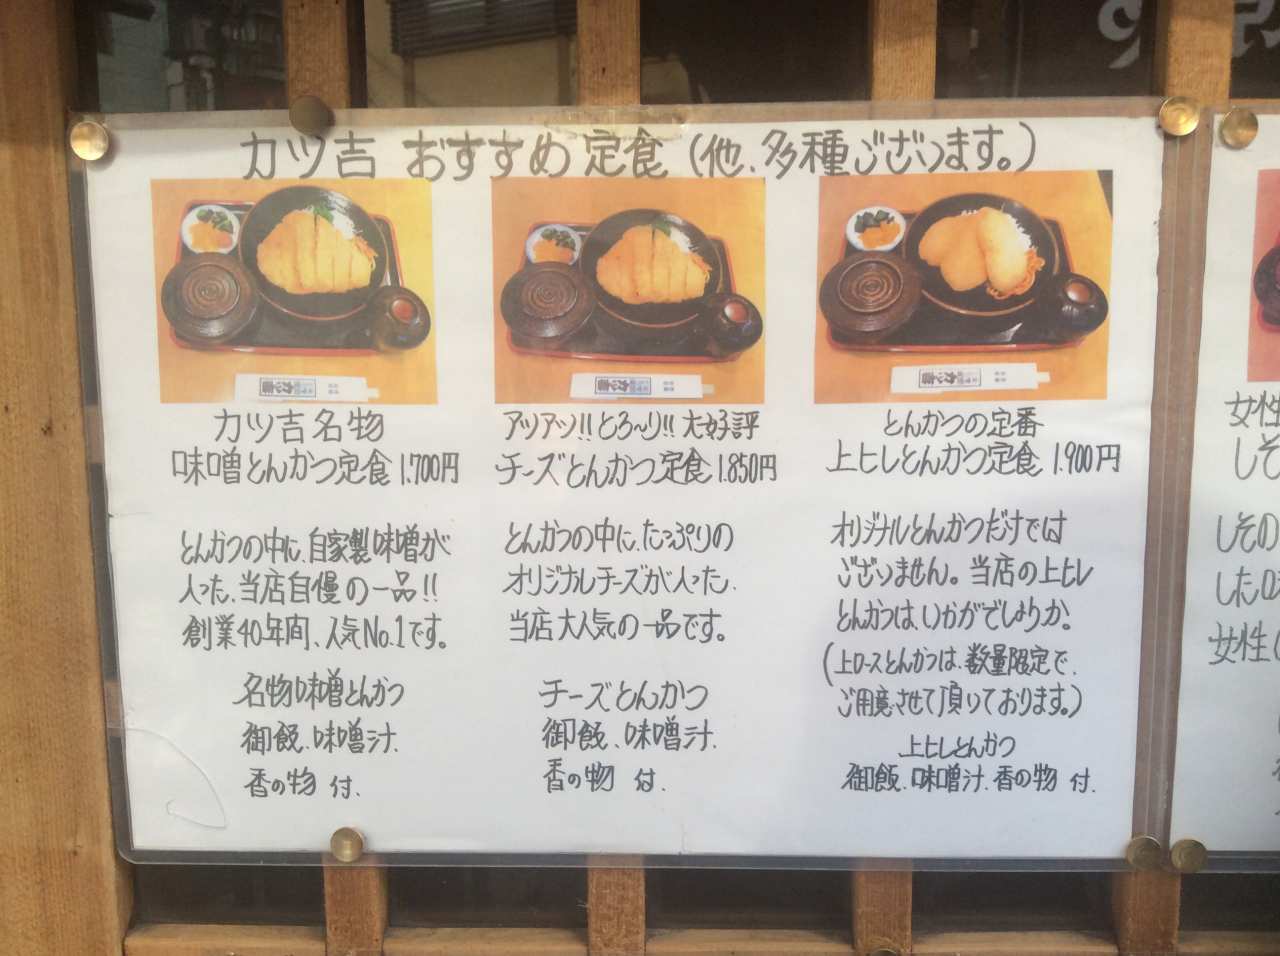 カツ吉 おすすめ定食 (他、多種ございます。)
カツ吉名物
味噌とんかつ定食 1,700円
とんかつの中に、自家製味噌が
入った、当店自慢の一品!!
創業40年間、人気No.1です。
名物味噌とんかつ
御飯、味噌汁、
香の物 付、
アツアツ!! とろ～り!! 大好評
チーズとんかつ定食 1,850円
とんかつの中に、たっぷりの
オリジナルチーズが入った、
当店大人気の一品です。
チーズとんかつ
御飯、味噌汁、
香の物 付、
とんかつの定番
上ヒレとんかつ定食 1,900円
オリジナルとんかつだけでは
ございません。当店の上ヒレ
とんかつは、いかがでしょうか。
(上ロースとんかつは、数量限定で、
ご用意させて頂いております。)
上ヒレとんかつ
御飯、味噌汁、香の物 付、
女性
しそ
しその
した
女性